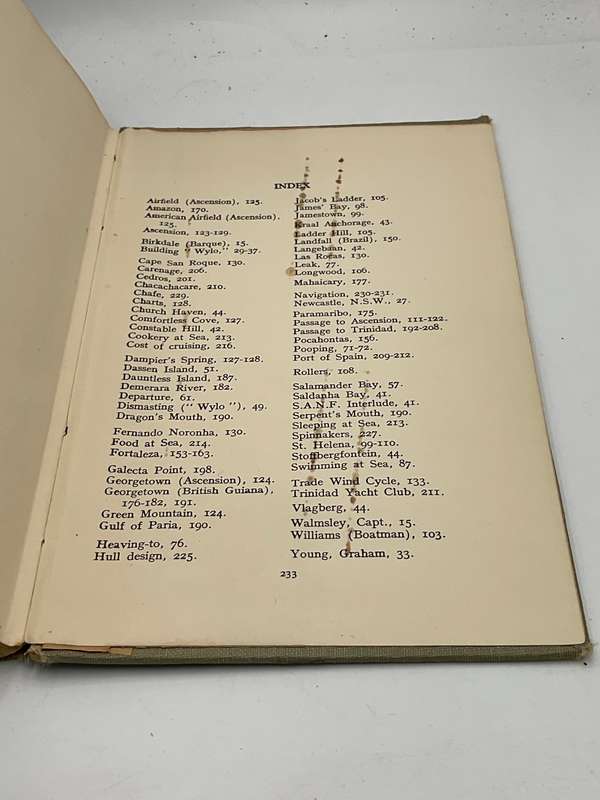 INDEX
Airfield (Ascension), 125.
Amazon, 170.
American Airfield (Ascension),
125.
Ascension, 123-129.
Birkdale (Barque), 15.
Building "Wylo," 29-37.
Cape San Roque, 130.
Carenage, 206.
Cedros, 201.
Chacachacare, 210.
Chafe, 229.
Charts, 128.
Church Haven, 44.
Comfortless Cove, 127.
Constable Hill, 42.
Cookery at Sea, 213.
Cost of cruising, 216.
Dampier's Spring, 127-128.
Dassen Island, 51.
Dauntless Island, 187.
Demerara River, 182.
Departure, 61.
Dismasting ("Wylo"), 49.
Dragon's Mouth, 190.
Fernando Noronha, 130.
Food at Sea, 214.
Fortaleza, 153-163.
Galecta Point, 198.
Georgetown (Ascension), 124.
Georgetown (British Guiana),
176-182, 191.
Green Mountain, 124.
Gulf of Paria, 190.
Heaving-to, 76.
Hull design, 225.
Jacob's Ladder, 105.
James' Bay, 98.
Jamestown, 99.
Kraal Anchorage, 43.
Ladder Hill, 105.
Landfall (Brazil), 150.
Langebaan, 42.
Las Rocas, 130.
Leak, 77.
Longwood, 106.
Mahaicary, 177.
Navigation, 230-231.
Newcastle, N.S.W., 27.
Paramaribo, 175.
Passage to Ascension, 111-122.
Passage to Trinidad, 192-208.
Pocahontas, 156.
Pooping, 71-72.
Port of Spain, 209-212.
Rollers, 108.
Salamander Bay, 57.
Saldanha Bay, 41.
S.A.N.F. Interlude, 41.
Serpent's Mouth, 190.
Sleeping at Sea, 213.
Spinnakers, 227.
St. Helena, 99-110.
Stoffbergfontein, 44.
Swimming at Sea, 87.
Trade Wind Cycle, 133.
Trinidad Yacht Club, 211.
Vlagberg, 44.
Walmsley, Capt., 15.
Williams (Boatman), 103.
Young, Graham, 33.
233